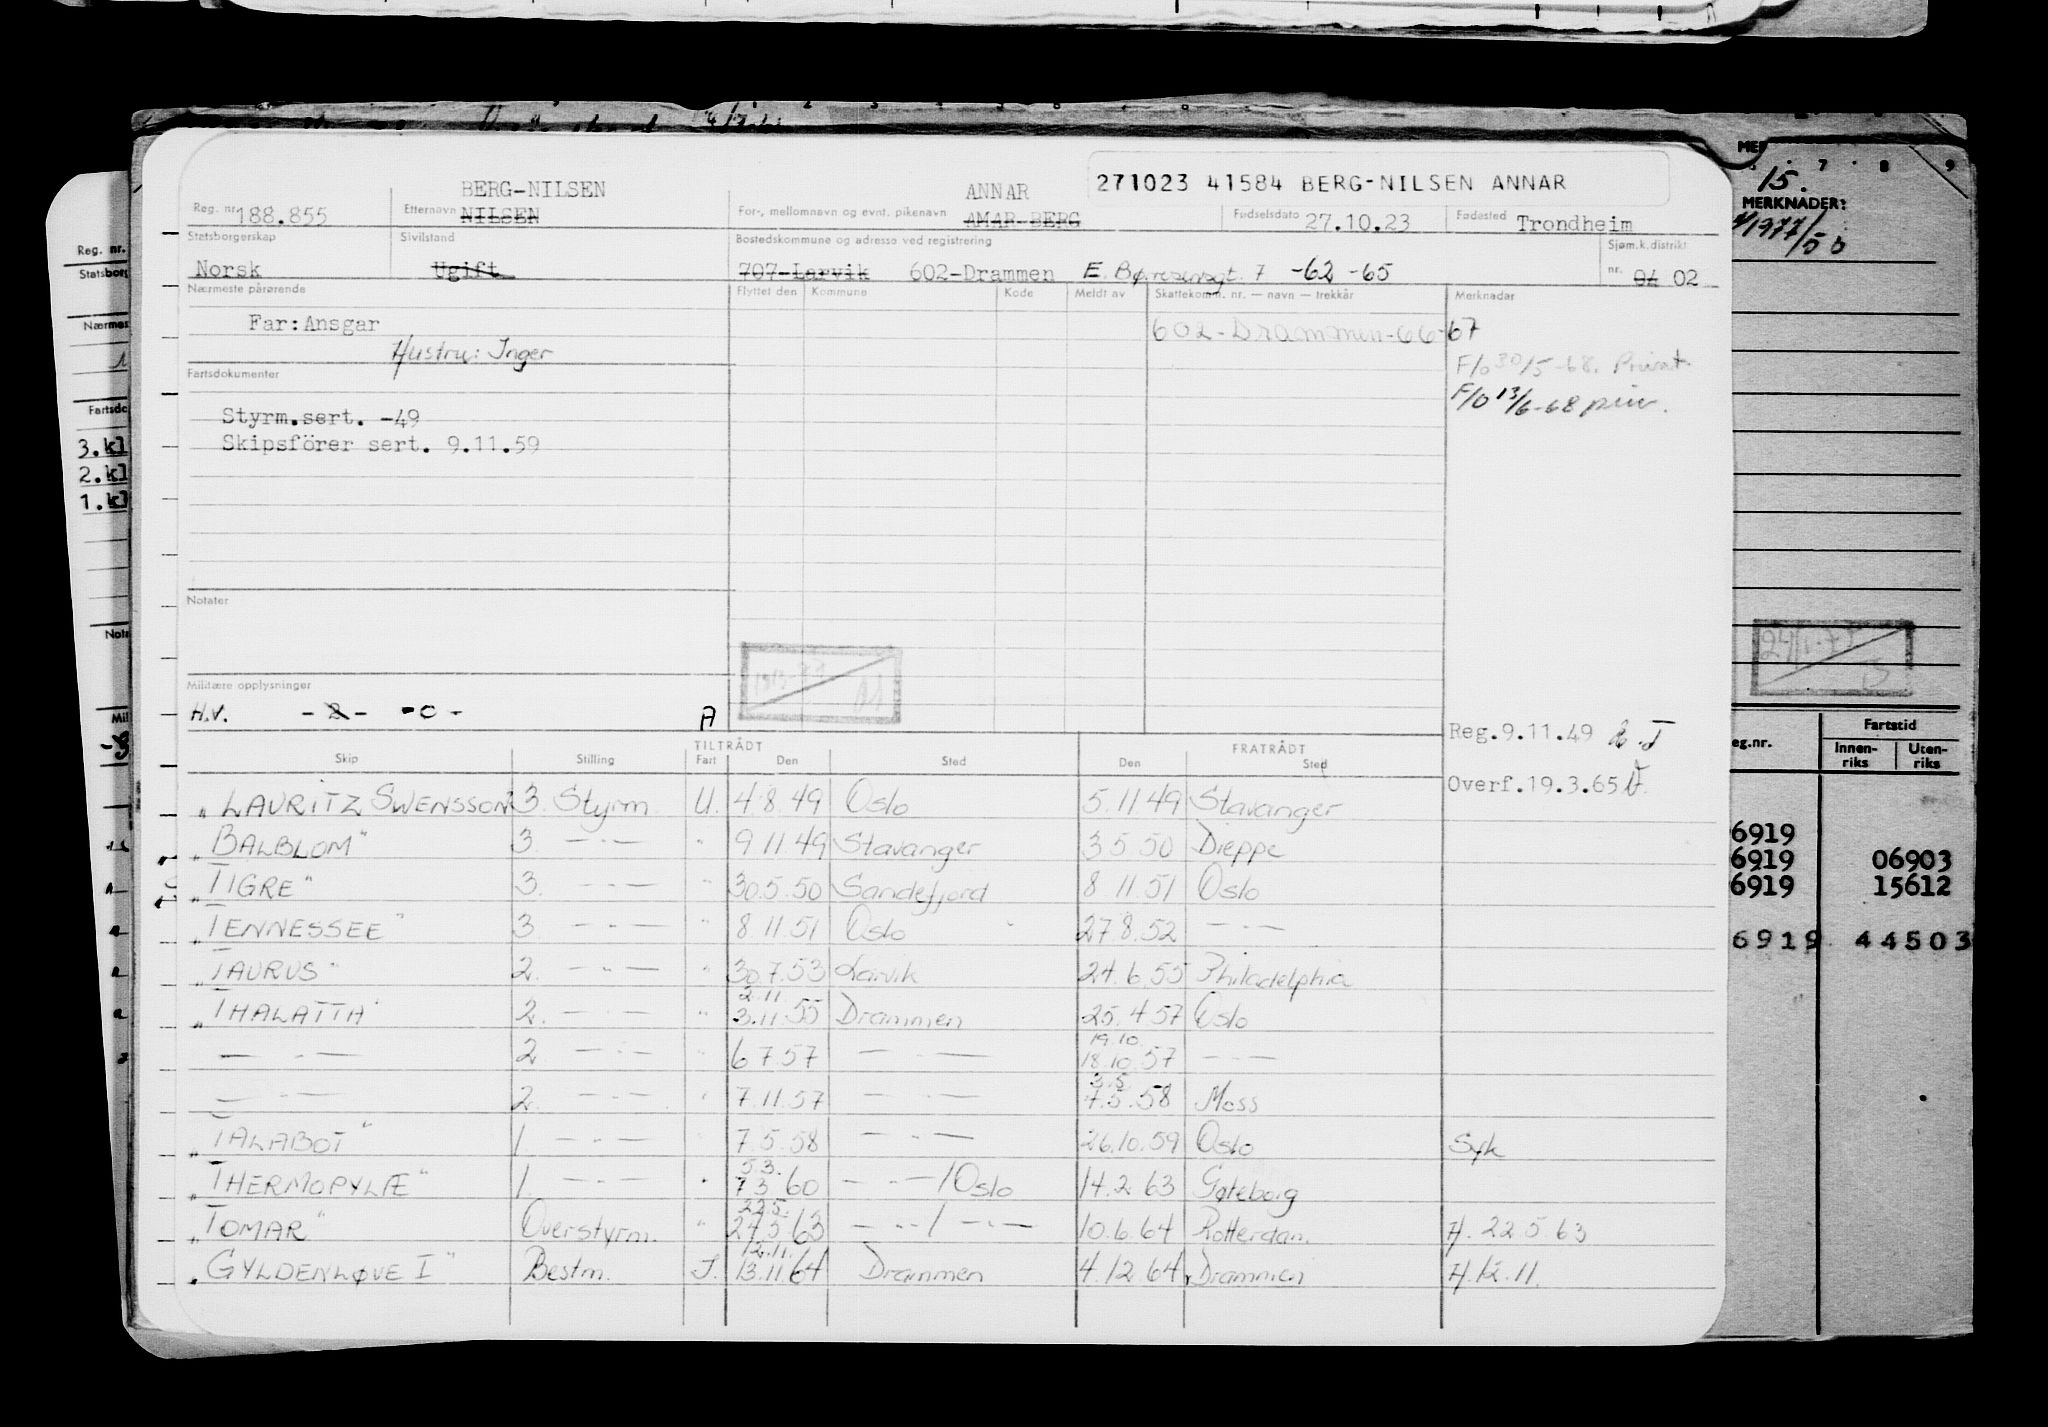 271023 41584 BERG-NILSEN ANNAR
BERG-NILSEN ANNAR
Reg. nr. 188.855 Etternavn NILSEN For-, mellomnavn og evnt. pikenavn AMAR BERG Fødselsdato 27.10.23 Fødested Trondheim
Statsborgerskap Sivilstand Bostedskommune og adresse ved registrering Sjøm.k.distrikt
Norsk Ugift 707-Larvik 602-Drammen E. Børresensgt. 7 -62 -65 nr. 04 02
Nærmeste pårørende Flyttet den Kommune Kode Meldt av Skattekom. nr. — navn — trekkår Merknader
Far: Ansgar 602-Drammen-66-67
Hustru: Inger F/o 30/5-68. Privat
Fartsdokumenter F/O 13/6-68 priv.
Styrm.sert. -49
Skipsförer sert. 9.11.59
Notater
Militære opplysninger
H.V. -2- -0- A
Reg.9.11.49
Overf.19.3.65
TILTRÅDT FRATRÅDT
Skip Stilling Fart Den Sted Den Sted
"LAURITZ SWENSSON" 3. Styrm. U. 4.8.49 Oslo 5.11.49 Stavanger
"BALBLOM" 3. —·— " 9.11.49 Stavanger 3.5.50 Dieppe
"TIGRE" 3. —·— " 30.5.50 Sandefjord 8.11.51 Oslo
"TENNESSEE" 3. —·— " 8.11.51 Oslo 27.8.52 —·—
"TAURUS" 2. —·— " 30.7.53 Larvik 24.6.55 Philadelphia
2.11.
"THALATTA" 2. —·— " 3.11.55 Drammen 25.4.57 Oslo
19.10.
—·— 2 —·— " 6.7.57 —·— 18.10.57 —·—
3.5.
—·— 2. —·— " 7.11.57 —·— 7.5.58 Moss
"TALABOT" 1. —·— " 7.5.58 —·— 26.10.59 Oslo Syk
5.3.
"THERMOPYLÆ" 1. —·— " 7.3.60 —·—/Oslo 14.2.63 Gøteborg
22.5.
"TOMAR" Overstyrm. " 24.5.63 —··—/—·— 10.6.64 Rotterdam. H. 22.5.63
12.11.
"GYLDENLØVE I" Bestm. I. 13.11.64 Drammen 4.12.64 Drammen H.12.11.
Reg. nr.
Statsborg
Nærmes
Fartsdo
3.kl
2.kl
1.kl
Mil
7 8 9
15.
MERKNADER:
eg.nr. Fartstid
Innen-riks Uten-riks
6919
6919 06903
6919 15612
6919 44503